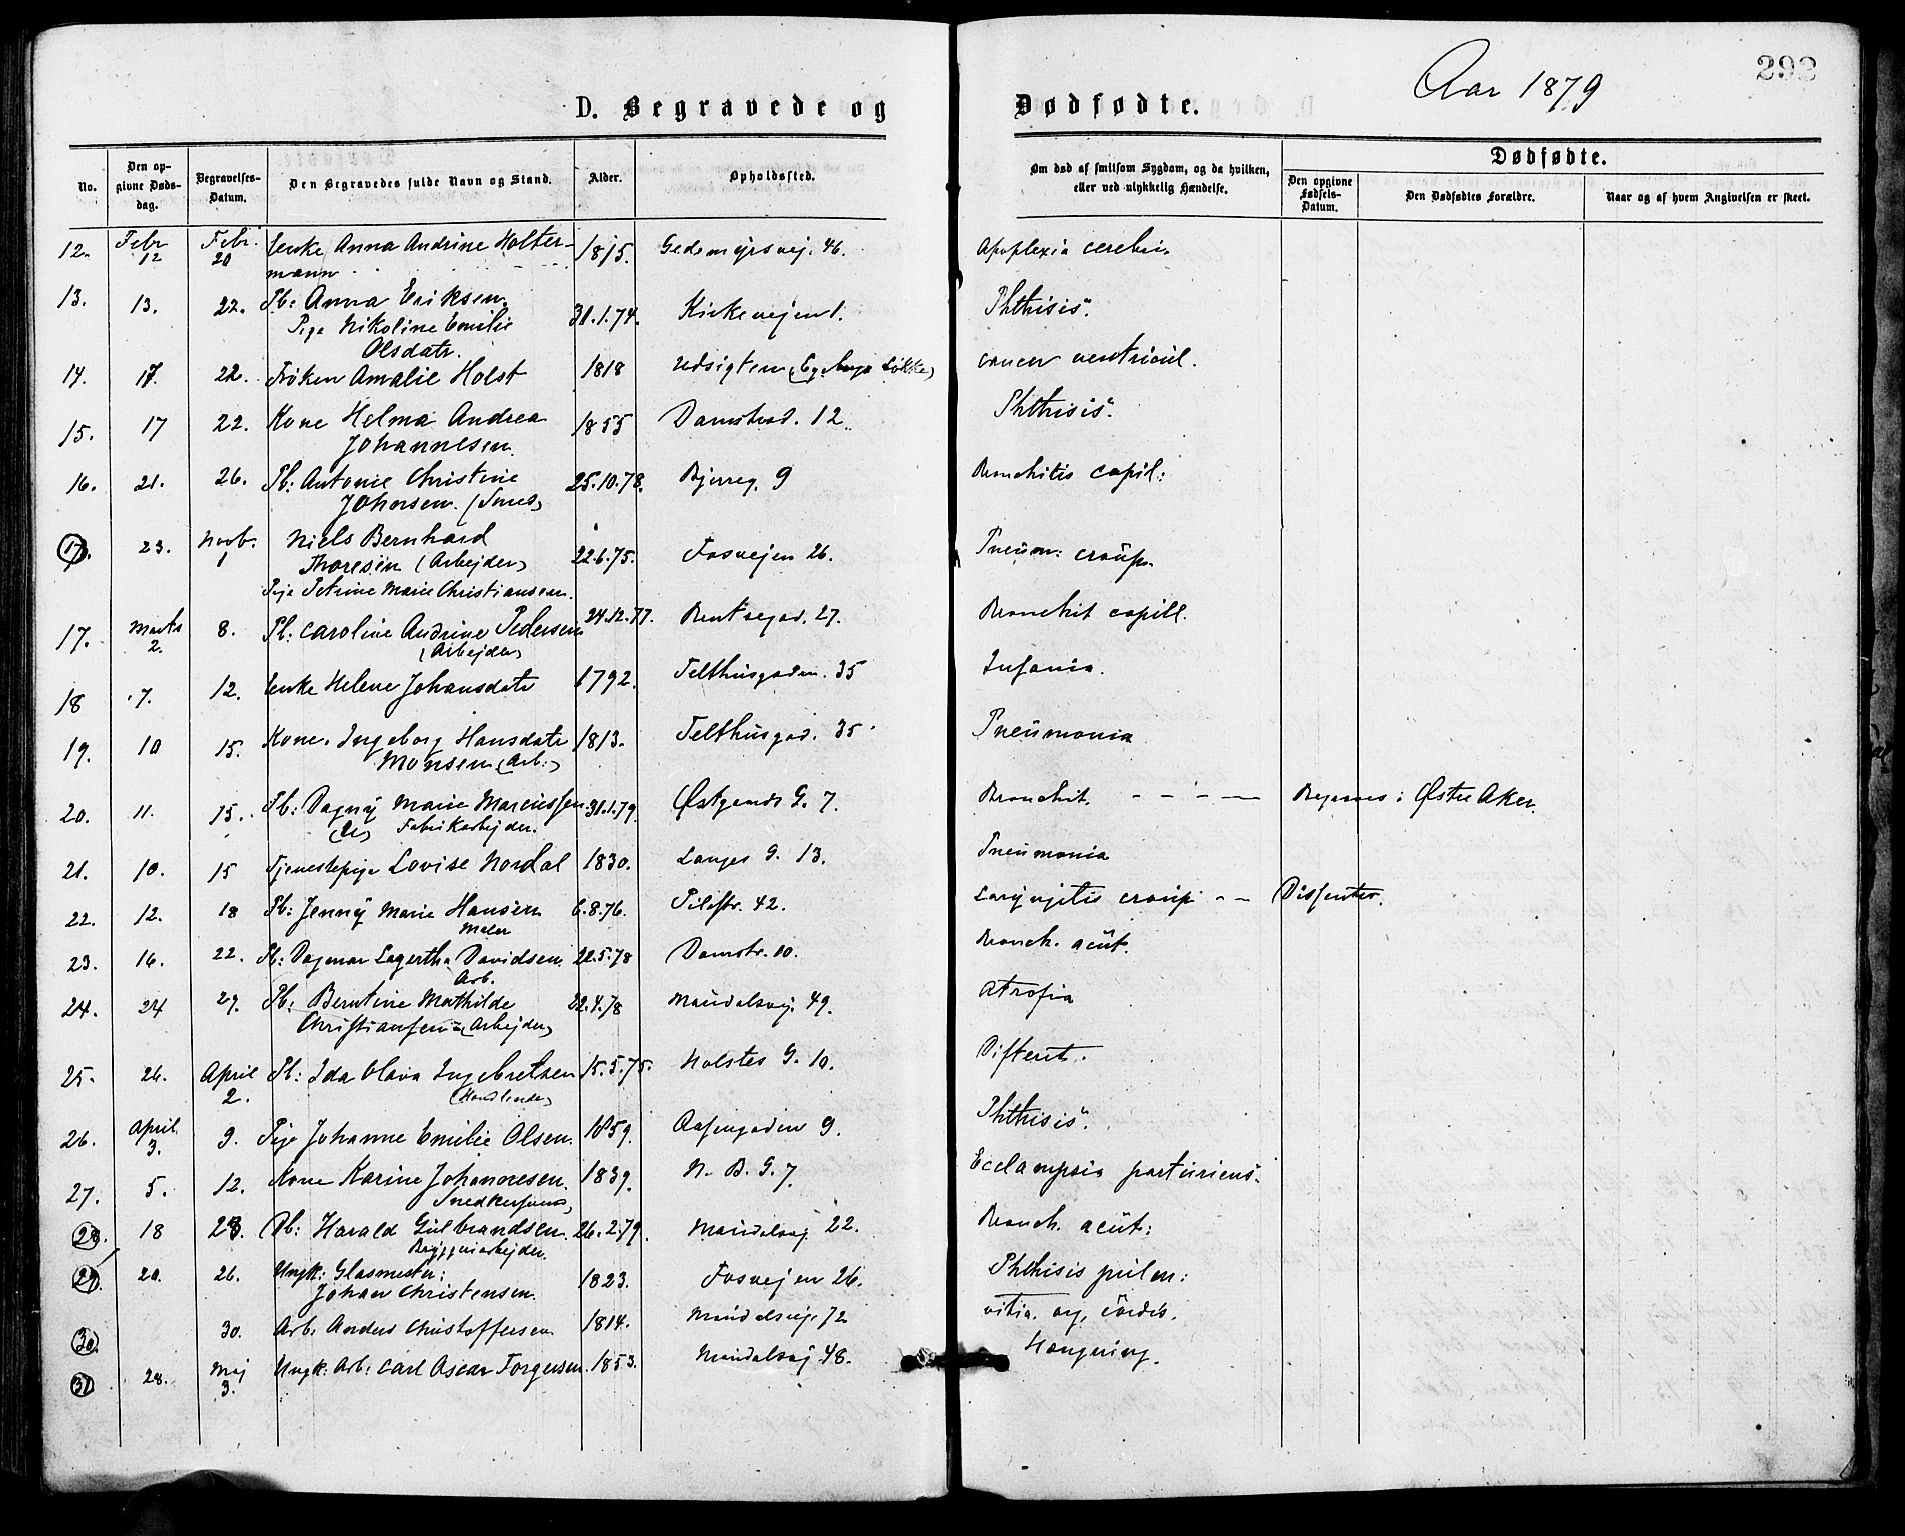 292
Aar 1879
D. Begravede og Dødfødte.
No.
Den opgivne Døds-
dag.
Begravelses-
Datum.
Den Begravedes fulde Navn og Stand.
Alder.
Opholdssted.
Om død af smitsom Sygdom, og da hvilken,
eller ved ulykkelig Hændelse.
Dødfødte.
Den opgivne
Fødsels-
Datum.
Den Dødfødtes Forældre.
Naar og af hvem Angivelsen er skeet.
12. Febr 12 Febr. 20 Enke Anna Andrine Holter- 1815. Gedemyrsvej. 46. Apoplexia cerebri.
mann
13. 13. 22. Pb: Anna Eriksen. 31.1.74. Kirkevejen 1. Phthisis.
Pige Nikoline Emilie
Olsdatr.
14. 17. 22. Frøken Amalie Holst 1818 Udsigten (Egebergs Løkke) cancer ventricul.
15. 17 22. Kone Helma Andrea 1855 Damstred. 12. Phthisis.
Johannesen.
16. 21. 26. Pb: Antonie Christine 25.10.78. Bjerreg. 9 Bronchitis capil:
Johnsen. (Smed)
17. 23. 1 Niels Bernhard 22.6.75. Fosvejen 26. Pneum: croup.
Thoresen (Arbejder)
Pige Petrine Marie Christiansen.
17. Marts 2. 8. Pb: Caroline Andrine Pedersen 24.12.77. Bentsegad. 27. Bronchit capill.
(Arbejder)
18 7. 12. Enke Helene Johansdatr 1792. Telthusgaden. 35 Insania.
19. 10 15. Kone. Ingeborg Hansdatr 1813. Telthusgad. 35 Pneumonia
Monsen (Arb:)
20. 11. 15. Pb: Dagny Marie Marcussen 31.1.79. Østgaards G. 7. Bronchit. - - - - Begraves i Østre Aker.
Fabrikarbejder.
21. 10. 15 Tjenestepige Lovise Nordal 1830. Langes G. 13. Pneumonia
22. 12. 18 Pb: Jenny Marie Hansen 6.8.76. Pilestr. 42. Laryngitis croup - - Dissenter.
Maler
23. 16. 22. Pb: Dagmar Lagertha Davidsen. 22.5.78 Damstr. 10. Bronch. acut.
Arb.
24. 24 29. Pb: Berntine Mathilde 22.4.78 Maridalsvej. 49. Atrofia
Christiansen (Arbejder)
25. 26. April 2. Pb: Ida Olava Ingebretsen 15.5.75. Holstes G. 10. Difterit.
(Handlende)
26. April 3. 9. Pige Johanne Emilie Olsen. 1859. Aasengaden 9. Phthisis.
27. 5. 12. Kone Karine Johannesen. 1839. N. B. G. 7 Ecclampsia parturiens.
Snedkersvend
28. 18 23. Pb: Harald Gulbrandsen. 26.2.79. Maridalsvej 22. Bronch. acut:
Bryggeriarbejder.
29. 20. 26. Ungk: Glasmester: 1823. Fosvejen 26. Phthisis pulm:
Johan Christensen.
30. 30. Arb. Anders Christoffersen 1814. Maridalsvej. 72 vitia. org. cordis.
31 28. Maj 3. Ungk: Arb: Carl Oscar Torgersen. 1853. Maridalsvej 48. Hængning.